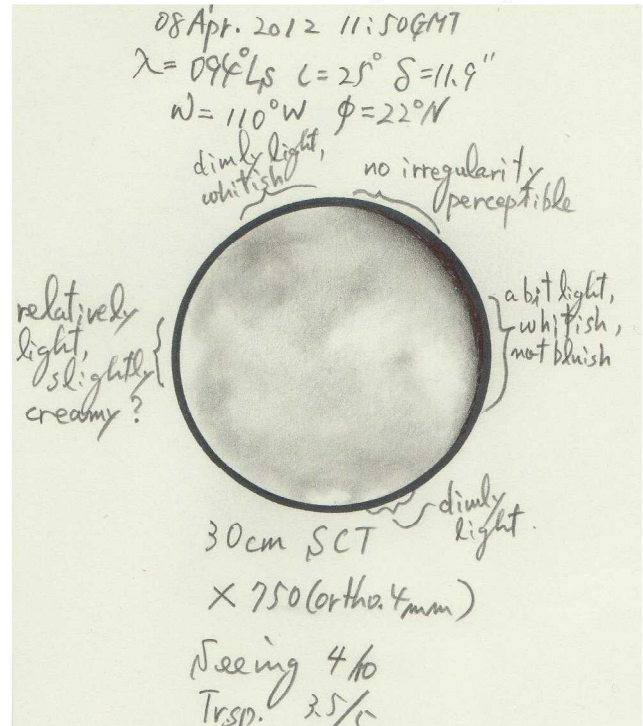 08 Apr. 2012 11:50GMT
λ= 094°Ls ι=25° δ=11.9"
ω= 110°W φ=22°N
dimly light,
whitish
no irregularity
perceptible
relatively
light,
slightly
creamy ?
a bit light,
whitish,
not bluish
dimly
light.
30cm SCT
× 750 (ortho. 4mm)
Seeing 4/10
Trsp. 3.5/5